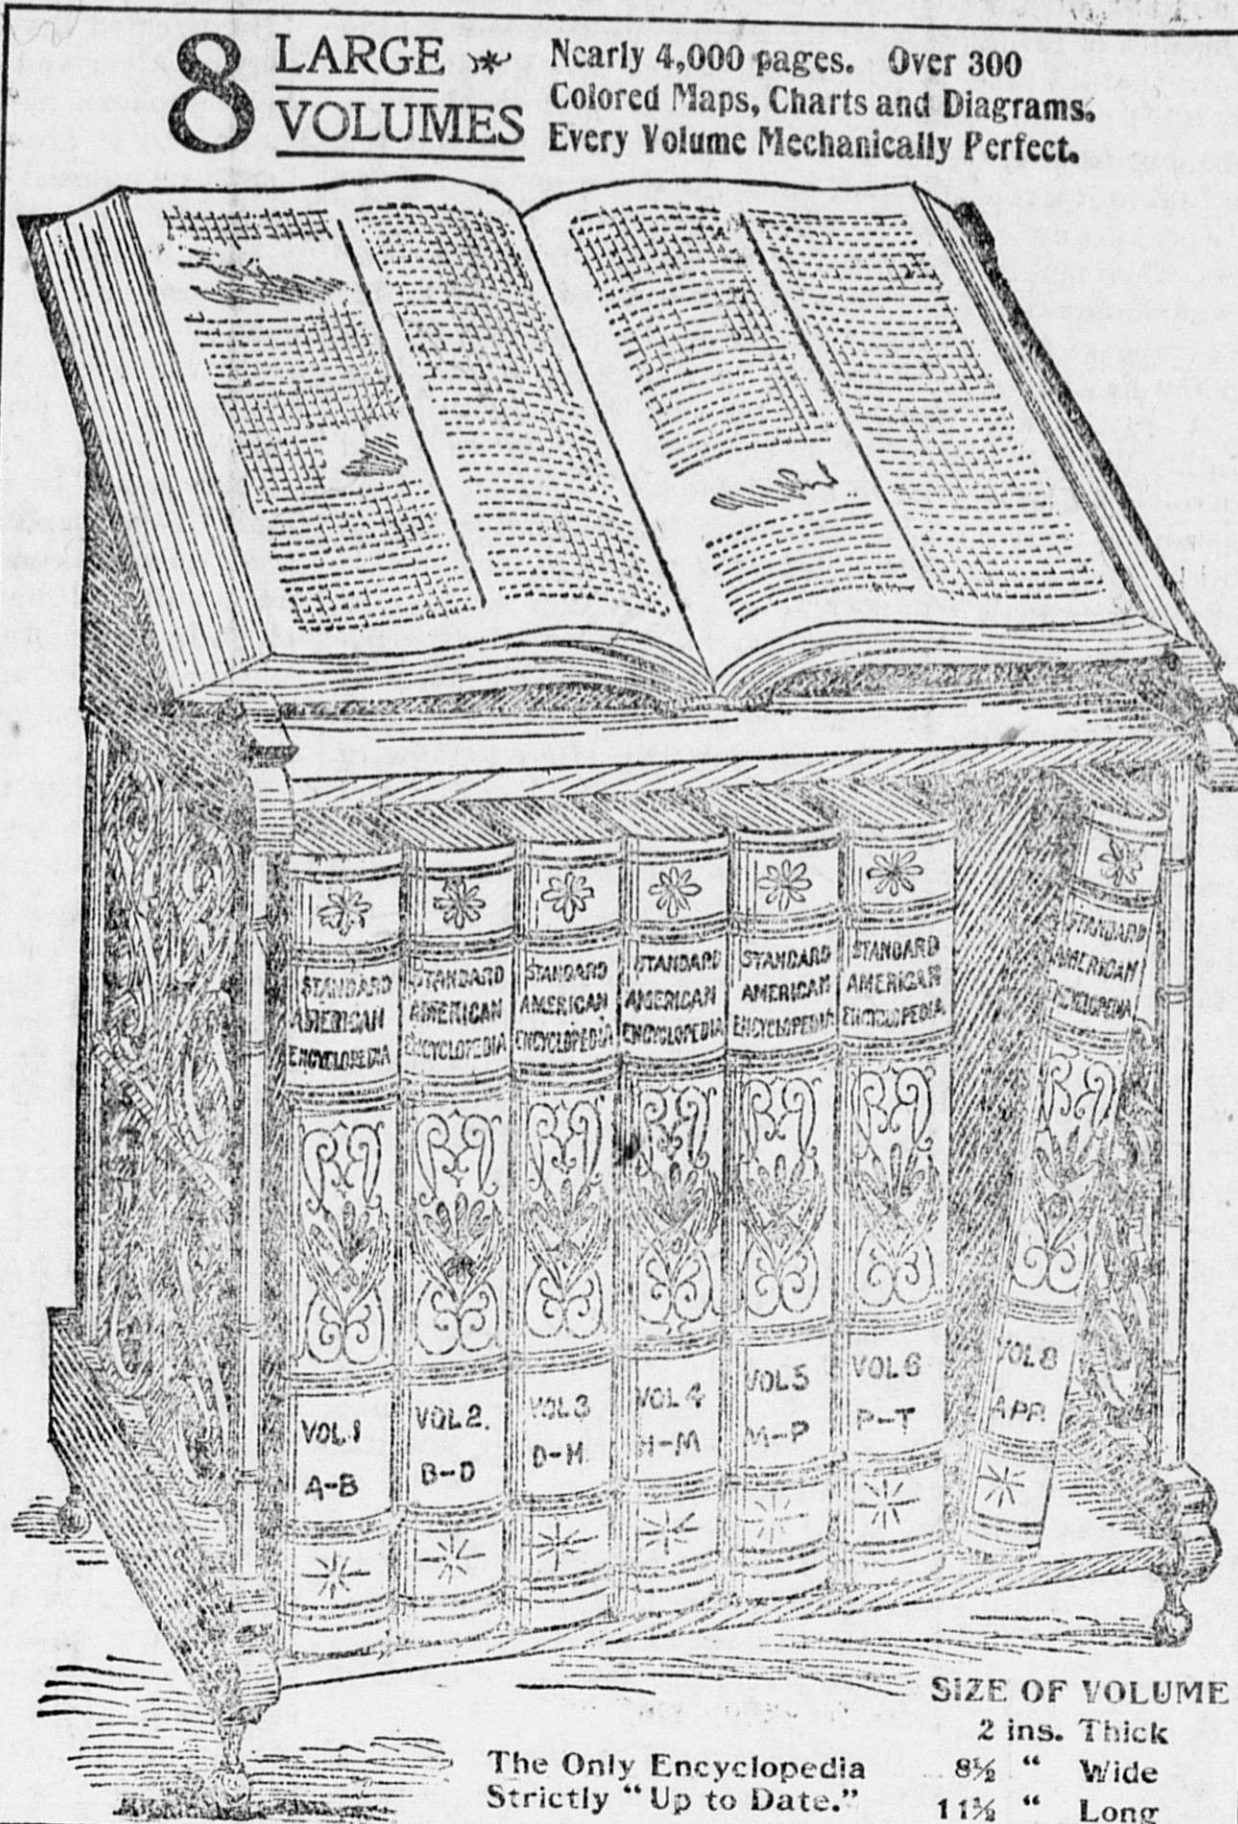 8 LARGE VOLUMES
Nearly 4,000 pages. Over 300
Colored Maps, Charts and Diagrams.
Every Volume Mechanically Perfect.
STANDARD
AMERICAN
ENCYCLOPEDIA
VOL.1
A-B
STANDARD
AMERICAN
ENCYCLOPEDIA
VOL 2.
B-D
STANDARD
AMERICAN
ENCYCLOPEDIA
VOL 3
D-H
STANDARD
AMERICAN
ENCYCLOPEDIA
VOL 4
H-M
STANDARD
AMERICAN
ENCYCLOPEDIA
VOL 5
M-P
STANDARD
AMERICAN
ENCYCLOPEDIA
VOL 6
P-T
STANDARD
AMERICAN
ENCYCLOPEDIA
VOL 8
APP.
The Only Encyclopedia
Strictly "Up to Date."
SIZE OF VOLUME
2 ins. Thick
8½ " Wide
11½ " Long